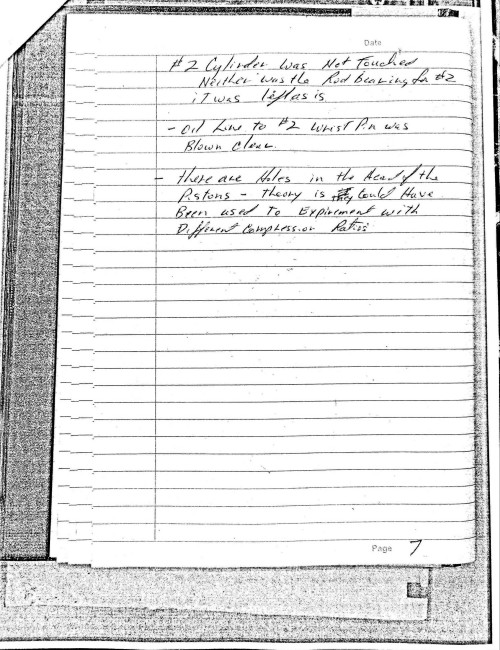 Date
#2 Cylinder was Not Touched
Neither was the Rod Bearing for #2
iT was left as is
- Oil Line to #2 wrist Pin was
Blown Clear.
- there are Holes in the Head of the
Pistons - theory is they Could Have
Been used to Expirement with
Different Compression Ratios
Page 7